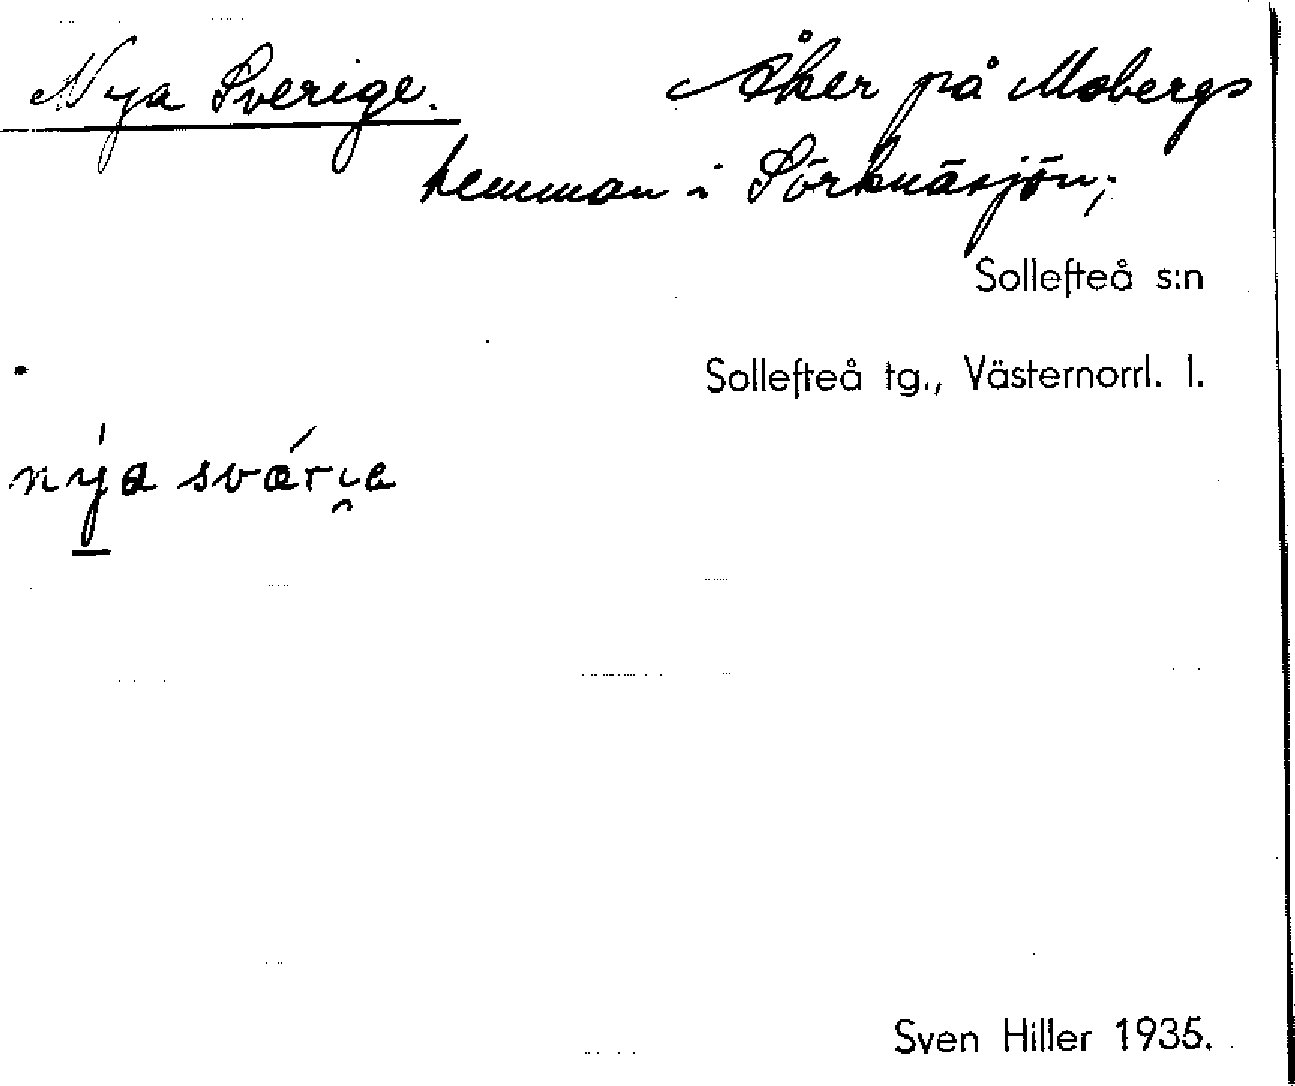 Nya Sverige. Åker på Mobergs
hemman i Sörknäsjön;
Sollefteå s:n
Sollefteå tg., Västernorrl. l.
nýa sværi̯a
Sven Hiller 1935.